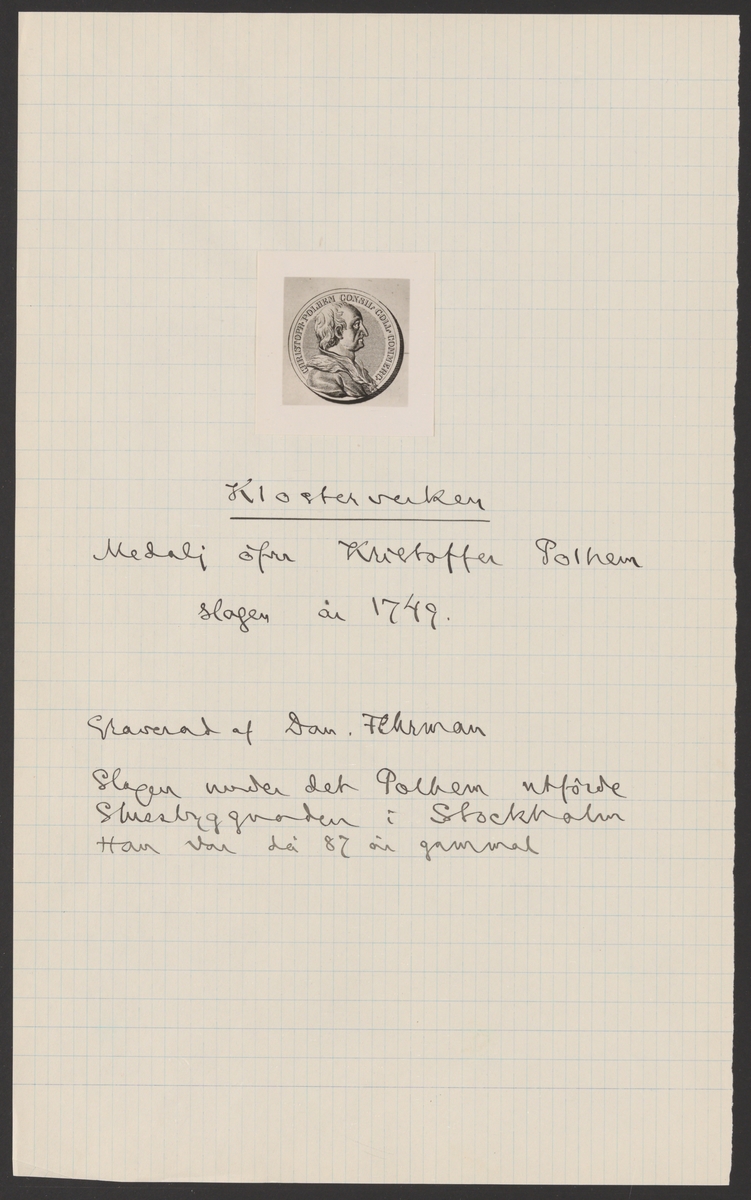 CHRISTOPH. POLHEM CONSIL. COLL. COMMERC.
Klosterverken
Medalj öfver Kristoffer Polhem
slagen år 1749.
Graverad af Dan. Fehrman
Slagen under det Polhem utförde
Slussbyggnaden i Stockholm
Han var då 87 år gammal